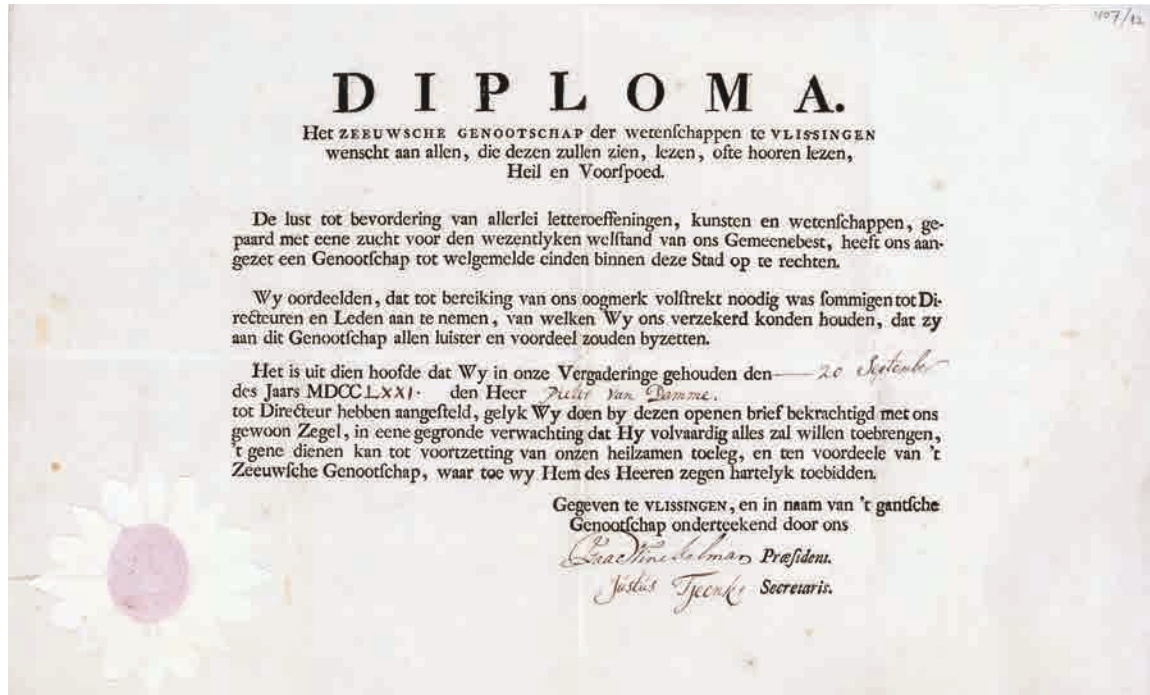 407/12
DIPLOMA.
Het ZEEUWSCHE GENOOTSCHAP der wetenſchappen te VLISSINGEN
wenscht aan allen, die dezen zullen zien, lezen, ofte hooren lezen,
Heil en Voorſpoed.
De lust tot bevordering van allerlei letteroeffeningen, kunsten en wetenſchappen, ge-
paard met eene zucht voor den wezentlyken welſtand van ons Gemeenebest, heeft ons aan-
gezet een Genootſchap tot welgemelde einden binnen deze Stad op te rechten.
Wy oordeelden, dat tot bereiking van ons oogmerk volſtrekt noodig was ſommigen tot Di-
recteuren en Leden aan te nemen, van welken Wy ons verzekerd konden houden, dat zy
aan dit Genootſchap allen luister en voordeel zouden byzetten.
Het is uit dien hoofde dat Wy in onze Vergaderinge gehouden den 20 September
des Jaars MDCCLXXI. den Heer Pieter Van Damme.
tot Directeur hebben aangeſteld, gelyk Wy doen by dezen openen brief bekrachtigd met ons
gewoon Zegel, in eene gegronde verwachting dat Hy volvaardig alles zal willen toebrengen,
't gene dienen kan tot voortzetting van onzen heilzamen toeleg, en ten voordeele van 't
Zeeuwſche Genootſchap, waar toe wy Hem des Heeren zegen hartelyk toebidden.
Gegeven te VLISSINGEN, en in naam van 't gantſche
Genootſchap onderteekend door ons
Isaac Winckelman Præſident.
Justus Tjeenk Secretaris.